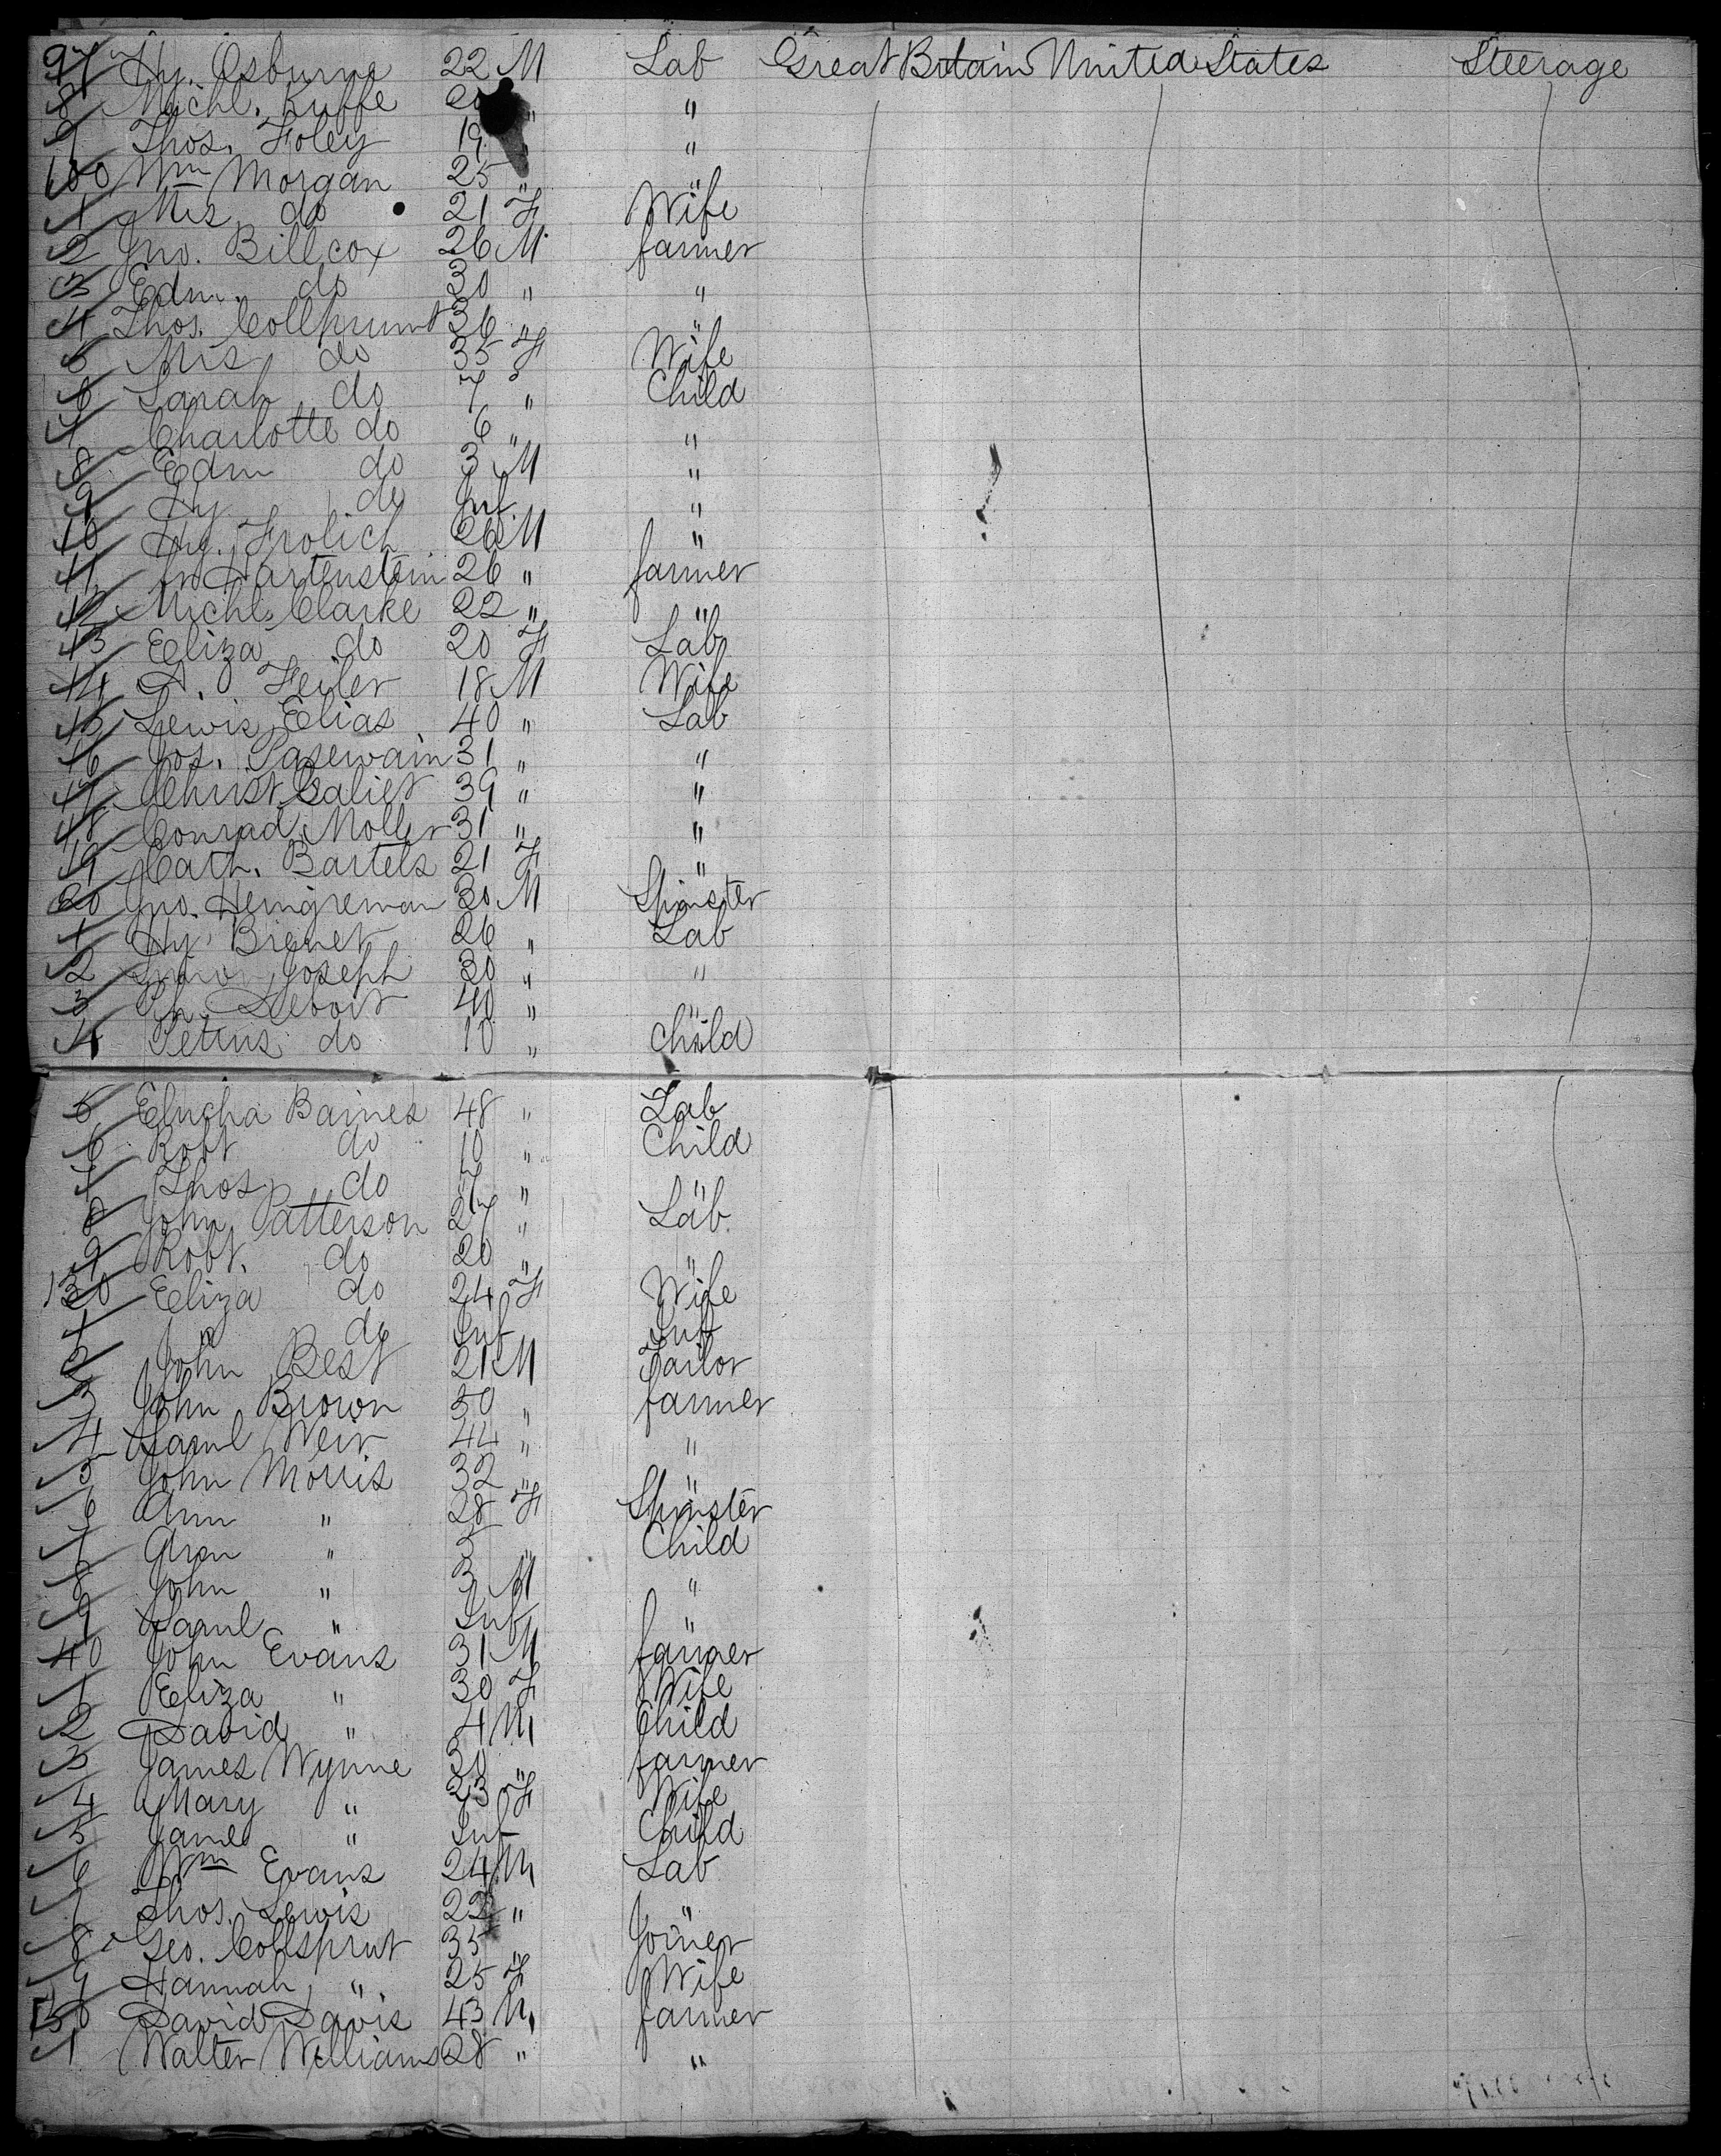 97 Hy. Osburne 22 M Lab Great Britain United States Steerage
8 Michl. Ruffe 20 " "
9 Thos. Foley 19 " "
100 Wm Morgan 25 " "
1 Mrs do 21 F Wife
2 Jno. Billcox 26 M farmer
3 Edm. do 30 " "
4 Thos. 36 " "
5 Mrs do 35 F Wife
6 Sarah do 7 " Child
7 Charlotte do 6 " "
8 Edm do 3 M "
9 Hy do Inf "
10 Hy. Frolich 26 M "
11 Hartenstein 26 " farmer
12 Michl. Clarke 22 " "
13 Eliza do 20 F Lab
14 Feiler 18 M Wife
15 Lewis Elias 40 " Lab
16 Jos. Pasewain 31 " "
17 Christ. Galiet 39 " "
18 Conrad Moller 31 " "
19 Cath. Bartels 21 F "
20 Jno. Hemgreman 30 M Spinster
1 Hy Briener 26 " Lab
2 Joseph 30 " "
3 Ph. 40 " "
4 Pettus do 10 " Child
5 Baines 48 " Lab
6 Robt do 10 " Child
7 Thos do 7 " "
8 John Patterson 27 " Lab
9 Robt. do 20 " "
130 Eliza do 24 F Wife
1 do Inf Inf
2 John Best 21 M Tailor
3 John Brown 50 " farmer
4 Saml Weir 44 " "
5 John Morris 32 " "
6 Ann " 28 F Spinster
7 Ann " 5 " Child
8 John " 3 M "
9 Saml " Inf "
40 John Evans 31 M farmer
1 Eliza " 30 F Wife
2 David " 4 M Child
3 James Wynne 30 " farmer
4 Mary " 23 F Wife
5 James " Inf Child
6 Wm Evans 24 M Lab
7 Thos. Lewis 22 " "
8 Geo. Collsprut 35 " Joiner
9 Hannah " 25 F Wife
150 David Davis 43 M farmer
1 Walter Williams 28 " "